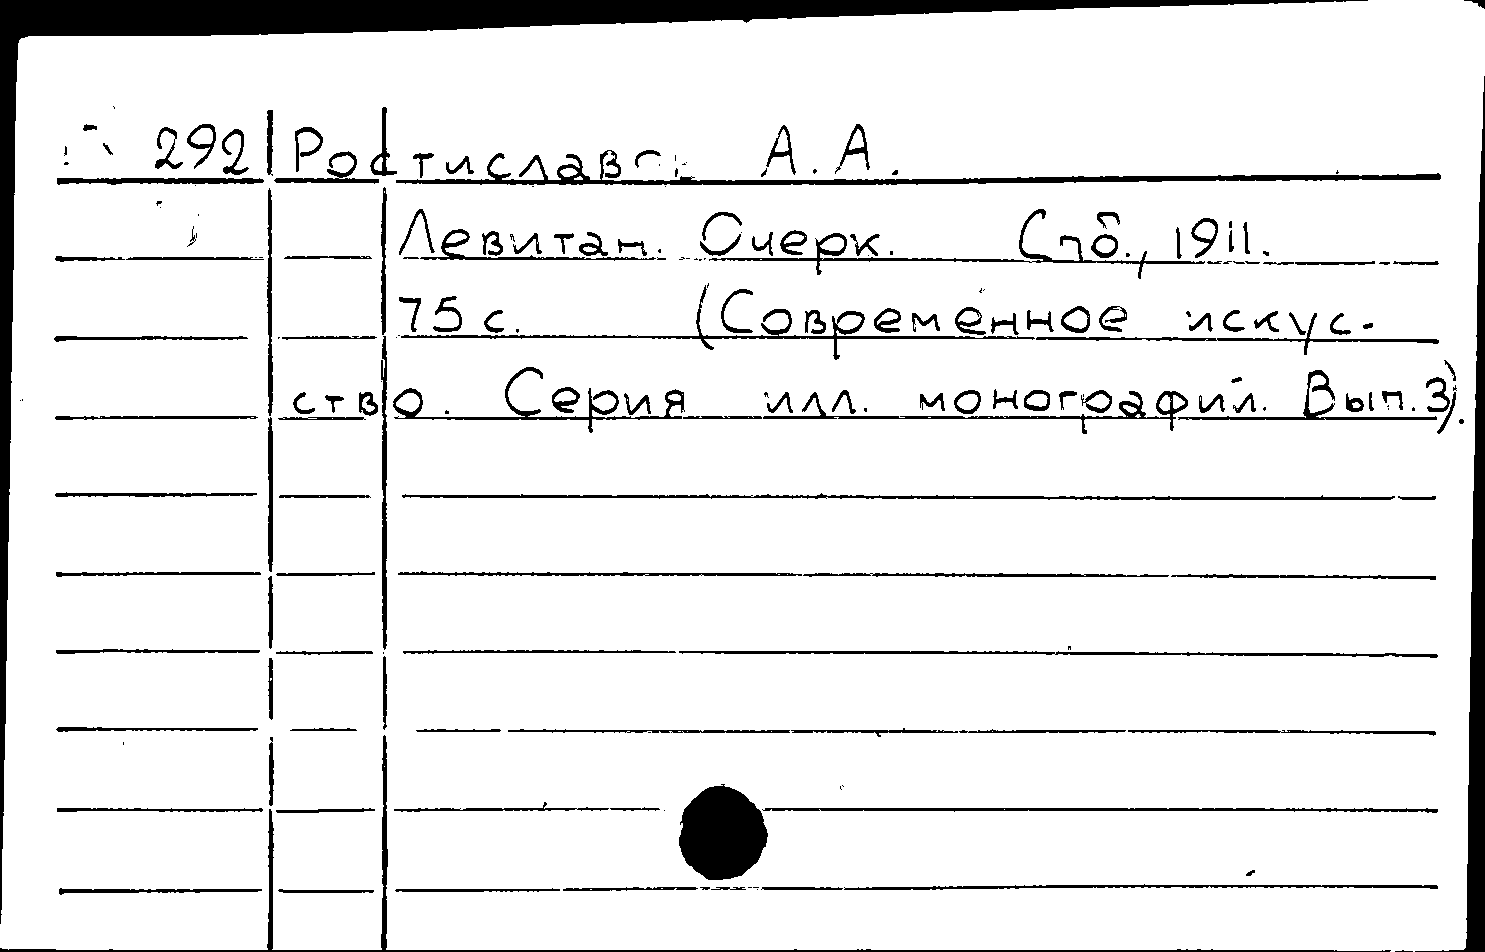 292 Ростиславов А. А.
Левитан. Очерк. Спб., 1911.
75 с. (Современное искус-
ство. Серия илл. монографий. Вып. 3).